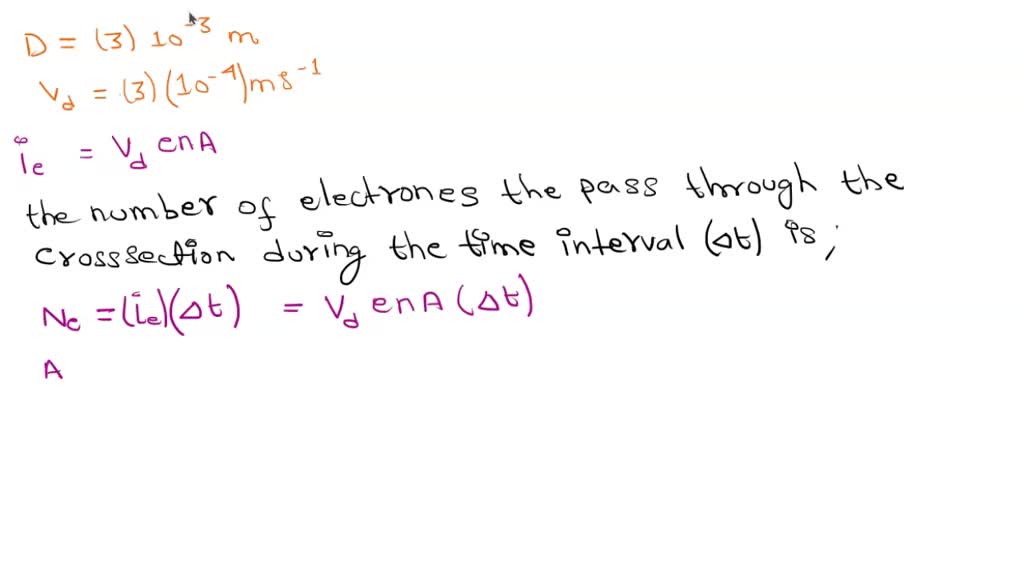 D = (3) 10⁻³ m
V_d = (3)(10⁻⁴)ms⁻¹
i_e = V_d enA
the number of electrones the pass through the
crosssection during the time interval (Δt) is;
N_e = (i_e)(Δt) = V_d enA (Δt)
A